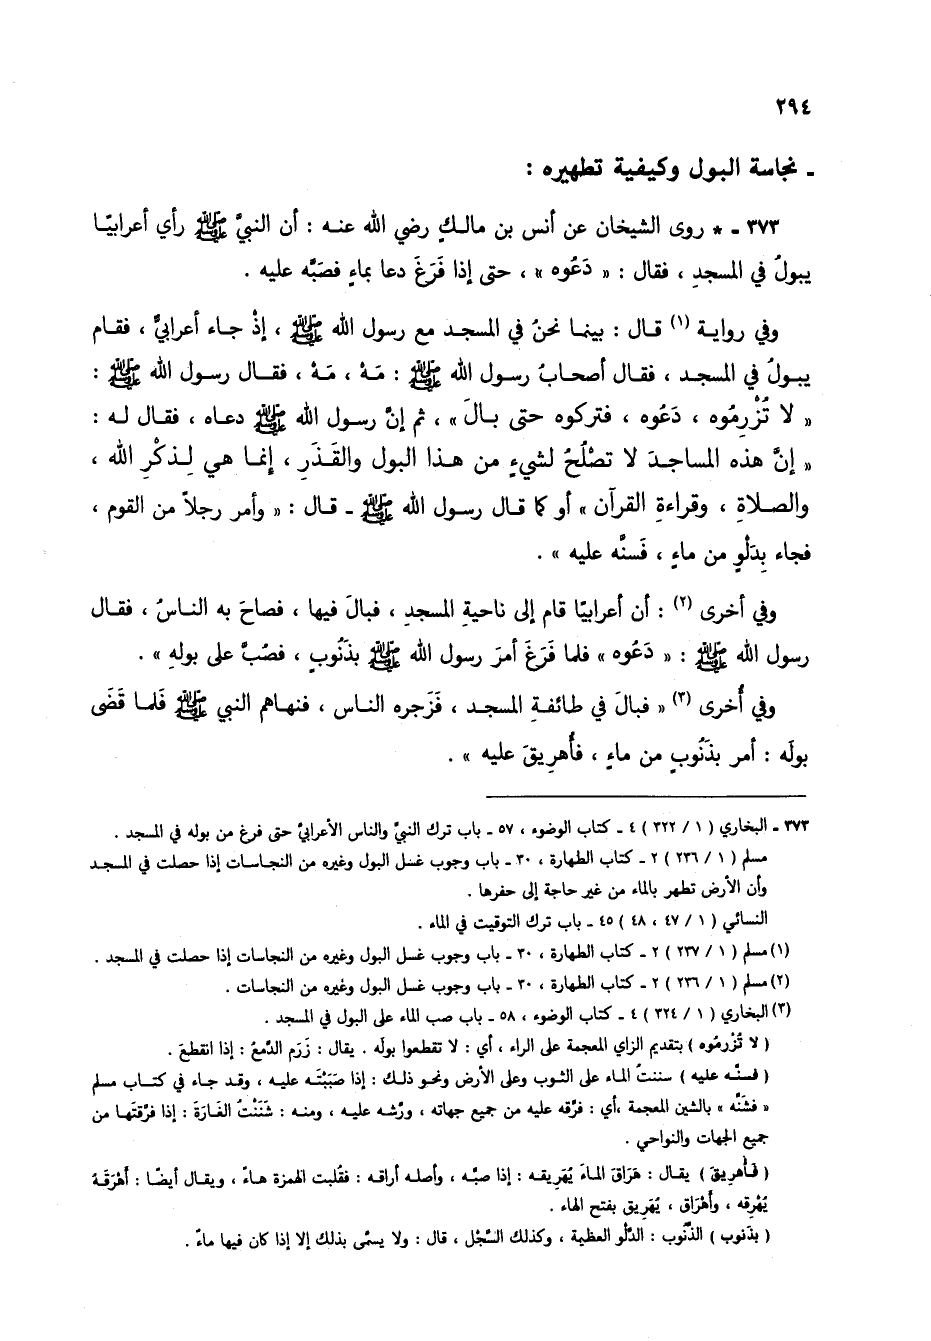 ٢٩٤
ـ نجاسة البول وكيفية تطهيره :
٣٧٣ ـ * روى الشيخان عن أنس بن مالكٍ رضي الله عنه : أن النبيَّ ﷺ رأي أعرابيًا
يبولُ في المسجدِ ، فقال : « دَعُوه » ، حتى إذا فَرَغَ دعا بماءٍ فصَبَّه عليه .
وفي رواية (١) قال : بينما نحنُ في المسجد مع رسول الله ﷺ ، إذْ جاء أعرابيٌّ ، فقام
يبولُ في المسجد ، فقال أصحابُ رسول الله ﷺ : مَهْ ، مَهْ ، فقال رسول الله ﷺ :
« لا تُزْرِمُوه ، دَعُوه ، فتركوه حتى بالَ » ، ثم إنَّ رسول الله ﷺ دعاه ، فقال له :
« إنَّ هذه المساجدَ لا تصْلُحُ لشيءٍ من هذا البول والقَذَرِ ، إنما هي لِذكْرِ الله ،
والصلاةِ ، وقراءةِ القرآن » أو كما قال رسول الله ﷺ ـ قال : « وأمر رجلاً من القوم ،
فجاء بِدَلْوٍ من ماءٍ ، فَسنَّه عليه » .
وفي أخرى (٢) : أن أعرابيًا قام إلى ناحيةِ المسجدِ ، فبالَ فيها ، فصاحَ به الناسُ ، فقال
رسول الله ﷺ : « دَعُوه » فلما فَرَغَ أمرَ رسول الله ﷺ بذَنُوبٍ ، فصُبَّ على بولهِ » .
وفي أُخرى (٣) « فبالَ في طائفةِ المسجد ، فَزَجره الناس ، فنهاهم النبي ﷺ فَلما قَضَى
بولَه : أمر بذَنُوبٍ من ماءٍ ، فأُهرِيقَ عليه » .
٣٧٣ ـ البخاري ( ١ / ٣٢٢ ) ٤ ـ كتاب الوضوء ، ٥٧ ـ باب ترك النبيُّ والناس الأعرابيَّ حتى فرغ من بوله في المسجد .
مسلم ( ١ / ٢٣٦ ) ٢ ـ كتاب الطهارة ، ٣٠ ـ باب وجوب غسل البول وغيره من النجاسات إذا حصلت في المسجد
وأن الأرض تطهر بالماء من غير حاجة إلى حفرها .
النسائي ( ١ / ٤٧ ، ٤٨ ) ٤٥ ـ باب ترك التوقيت في الماء .
(١) مسلم ( ١ / ٢٣٧ ) ٢ ـ كتاب الطهارة ، ٣٠ ـ باب وجوب غسل البول وغيره من النجاسات إذا حصلت في المسجد .
(٢) مسلم ( ١ / ٢٣٦ ) ٢ ـ كتاب الطهارة ، ٣٠ ـ باب وجوب غسل البول وغيره من النجاسات .
(٣) البخاري ( ١ / ٣٢٤ ) ٤ ـ كتاب الوضوء ، ٥٨ ـ باب صب الماء على البول في المسجد .
( لا تُزْرِمُوه ) بتقديم الزاي المعجمة على الراء ، أي : لا تقطعوا بولَه . يقال : زَرِم الدَّمعُ : إذا انقطعَ .
( فسنَّه عليه ) سننتُ الماء على الثوب وعلى الأرض ونحو ذلك : إذا صَبَبْتَه عليه ، وقد جاء في كتاب مسلم
« فشَنَّه » بالشين المعجمة ،أي : فرَّقه عليه من جميع جهاته ، ورُشه عليه ، ومنه : شَنَنْتُ الغَارَةَ : إذا فرَّقتَها من
جميع الجهات والنواحي .
( فأهريقَ ) يقال : هَرَاقَ الماءَ يُهَرِيقه : إذا صبَّه ، وأصله أراقه : فقُلبت الهمزة هاءً ، ويقال أيضًا : أهْرَقَهُ
يُهْرِقه ، وأهْرَاق ، يُهَرِيق بفتح الهاء .
( بذنوب ) الذَّنُوب : الدَّلْو العظية ، وكذلك السَّجْل ، قال : ولا يسمَّى بذلك إلا إذا كان فيها ماءٌ .